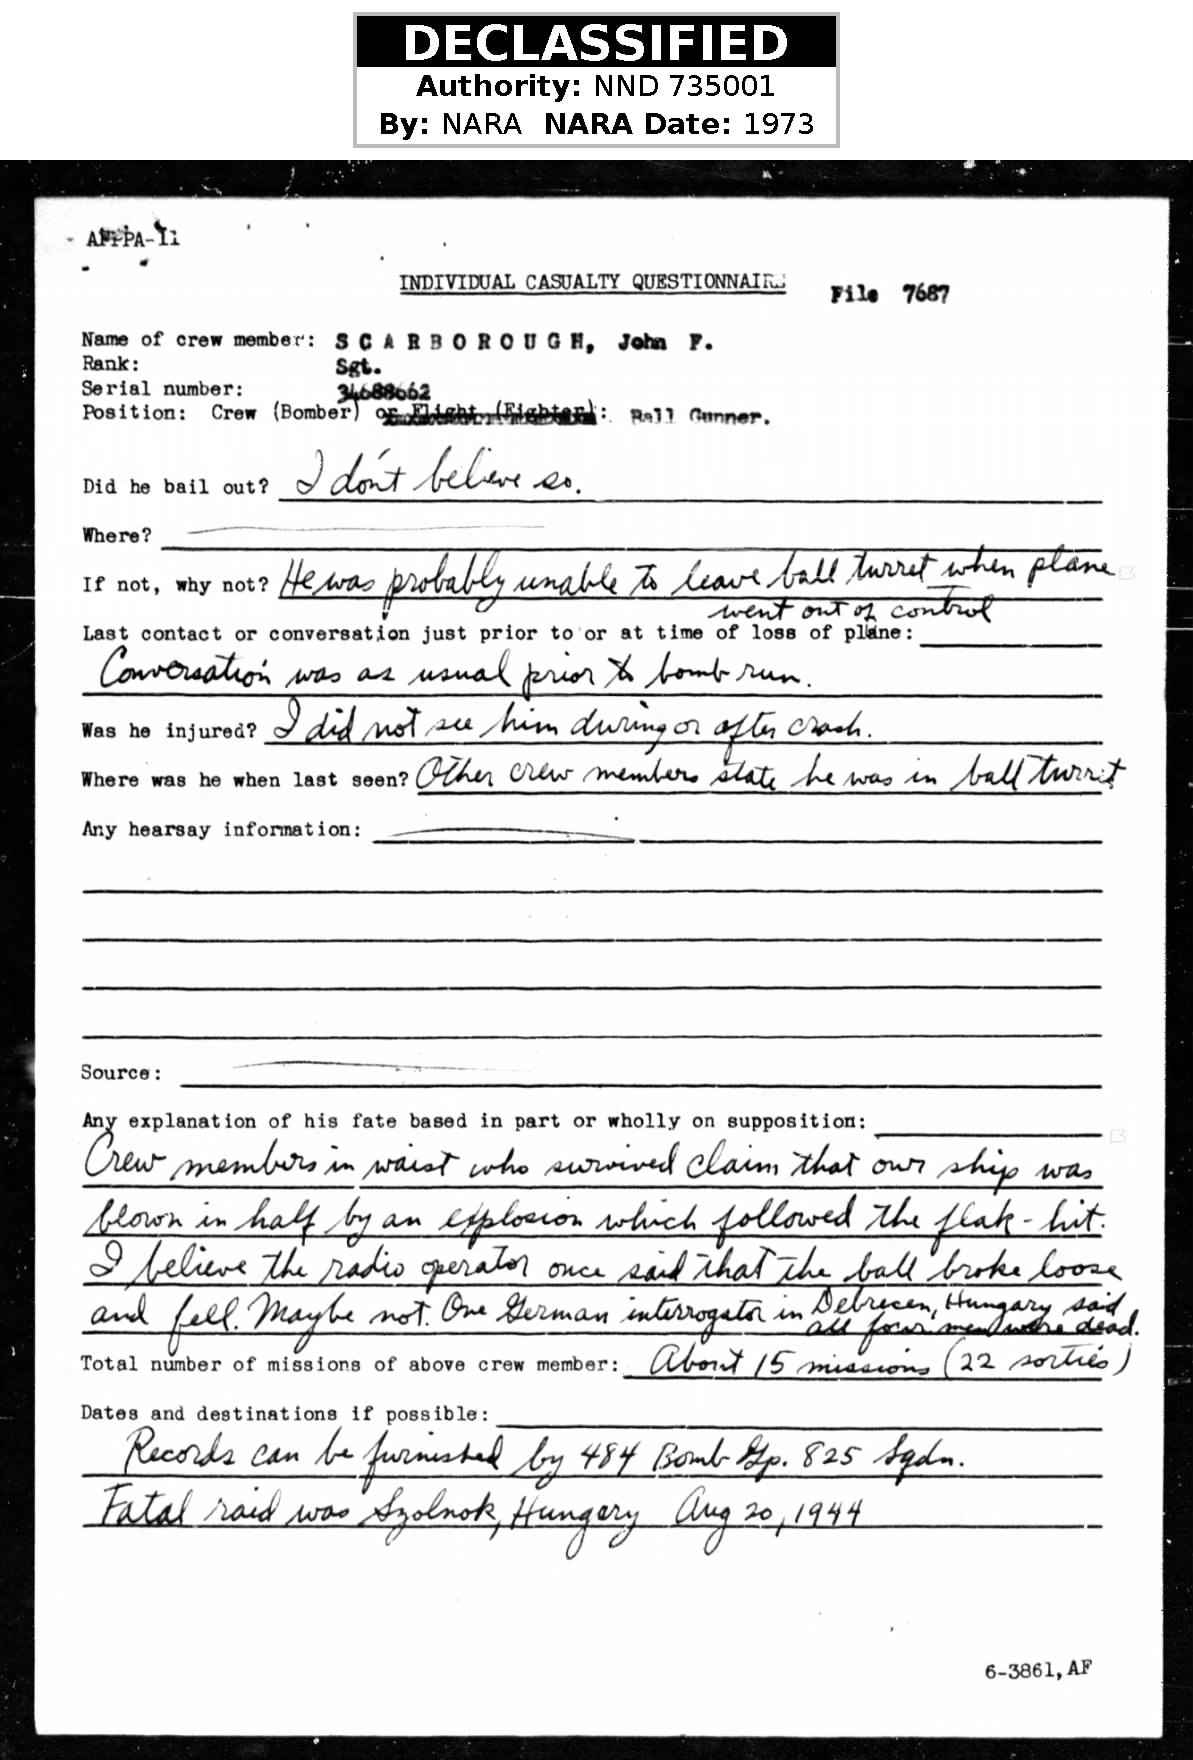 DECLASSIFIED
Authority: NND 735001
By: NARA NARA Date: 1973
AFPPA-11
INDIVIDUAL CASUALTY QUESTIONNAIRE
File 7687
Name of crew member: SCARBOROUGH, John F.
Rank: Sgt.
Serial number: 34688662
Position: Crew (Bomber) or Flight (Fighter): Ball Gunner.
Did he bail out? I don't believe so.
Where?
If not, why not? He was probably unable to leave ball turret when plane
went out of control
Last contact or conversation just prior to or at time of loss of plane:
Conversation was as usual prior to bomb run.
Was he injured? I did not see him during or after crash.
Where was he when last seen? Other crew members state he was in ball turret
Any hearsay information:
Source:
Any explanation of his fate based in part or wholly on supposition:
Crew members in waist who survived claim that our ship was
blown in half by an explosion which followed the flak-hit.
I believe the radio operator once said that the ball broke loose
and fell. Maybe not. One German interrogator in Debrecen, Hungary said
all four men were dead.
Total number of missions of above crew member: About 15 missions (22 sorties)
Dates and destinations if possible:
Records can be furnished by 484 Bomb Gp. 825 Sqdn.
Fatal raid was Szolnok, Hungary Aug 20, 1944
6-3861, AF